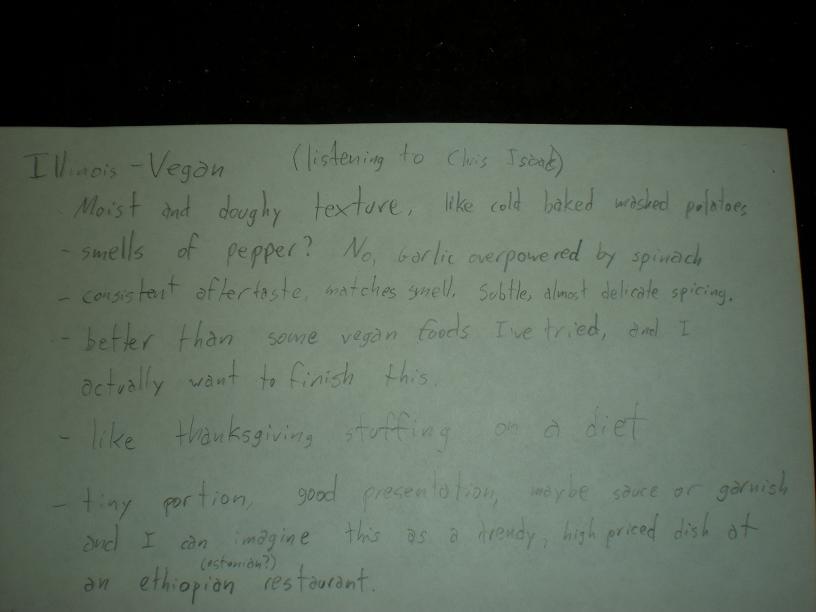 Illinois - Vegan (listening to Chris Isaak)
Moist and doughy texture, like cold baked mashed potatoes
- smells of pepper? No, Garlic overpowered by spinach
- consistent aftertaste, matches smell. Subtle, almost delicate spicing.
- better than some vegan foods I've tried, and I
actually want to finish this.
- like thanksgiving stuffing on a diet
- tiny portion, good presentation, maybe sauce or garnish
and I can imagine this as a trendy, high priced dish at
(estonian?)
an ethiopian restaurant.